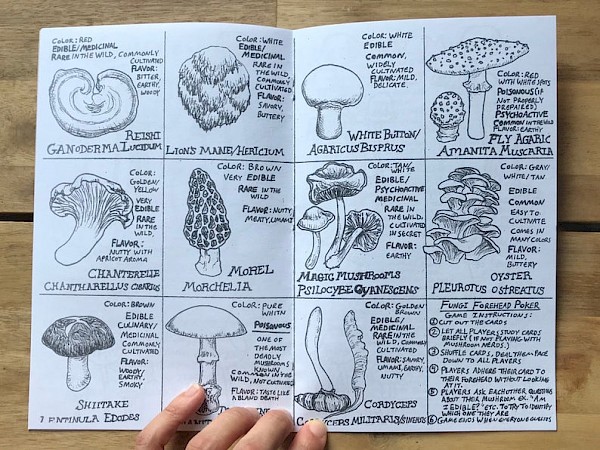 COLOR: RED
EDIBLE/MEDICINAL
RARE IN THE WILD, COMMONLY
CULTIVATED
FLAVOR:
BITTER,
EARTHY,
WOODY
REISHI
GANODERMA LUCIDUM
COLOR: WHITE
EDIBLE/
MEDICINAL
RARE IN
THE WILD,
COMMONLY
CULTIVATED
FLAVOR:
SAVORY,
BUTTERY
LION'S MANE/HERICIUM
COLOR: WHITE
EDIBLE
COMMON,
WIDELY
CULTIVATED
FLAVOR: MILD,
DELICATE.
WHITE BUTTON/
AGARICUS BISPRUS
COLOR: RED
WITH WHITE SPOTS
POISONOUS (IF
NOT PROPERLY
PREPARED)
PSYCHOACTIVE
COMMON IN THE WILD
FLAVOR: EARTHY
FLY AGARIC
AMANITA MUSCARIA
COLOR:
GOLDEN/
YELLOW
VERY
EDIBLE
RARE
IN THE
WILD,
FLAVOR:
NUTTY WITH
APRICOT AROMA
CHANTERELLE
CHANTHARELLUS CIBARIUS
COLOR: BROWN
VERY EDIBLE
RARE IN THE
WILD
FLAVOR: NUTTY
MEATY, UMAMI
MOREL
MORCHELLA
COLOR: TAN/
WHITE
EDIBLE/
PSYCHOACTIVE
MEDICINAL
RARE IN
THE WILD,
CULTIVATED
IN SECRET
FLAVOR:
EARTHY
MAGIC MUSHROOMS
PSILOCYBE CYANESCENS
COLOR: GRAY/
WHITE/TAN
EDIBLE
COMMON
EASY TO
CULTIVATE
COMES IN
MANY COLORS
FLAVOR:
MILD,
BUTTERY
OYSTER
PLEUROTUS OSTREATUS
COLOR: BROWN
EDIBLE
CULINARY/
MEDICINAL
COMMONLY
CULTIVATED
FLAVOR:
WOODY/
EARTHY,
SMOKY
SHIITAKE
LENTINULA EDODES
COLOR: PURE
WHITN
POISONOUS
ONE OF THE
MOST DEADLY
MUSHROOMS
KNOWN
COMMON IN THE
WILD, NOT CULTIVATED
FLAVOR: TASTE LIKE
A BLAND DEATH
COLOR: GOLDEN
BROWN
EDIBLE/
MEDICINAL
RARE IN THE
WILD, COMMONLY
CULTIVATED
FLAVOR: SAVORY,
UMAMI, EARTHY, NUTTY
CORDYCEPS
CORDYCEPS MILITARIS/SINENSIS
FUNGI FOREHEAD POKER
GAME INSTRUCTIONS:
① CUT OUT THE CARDS
② LET ALL PLAYERS STUDY CARDS
BRIEFLY (IF NOT PLAYING WITH
MUSHROOM NERDS.)
③ SHUFFLE CARDS, DEAL THEM FACE
DOWN TO ALL PLAYERS
④ PLAYERS ADHERE THEIR CARD TO
THEIR FOREHEAD WITHOUT LOOKING
AT IT.
⑤ PLAYERS ASK EACHOTHER QUESTIONS
ABOUT THEIR MUSHROOM EX. "AM
I EDIBLE?" ETC. TO TRY TO IDENTIFY
WHICH ONE THEY ARE
⑥ GAME ENDS WHEN EVERYONE GUESSES